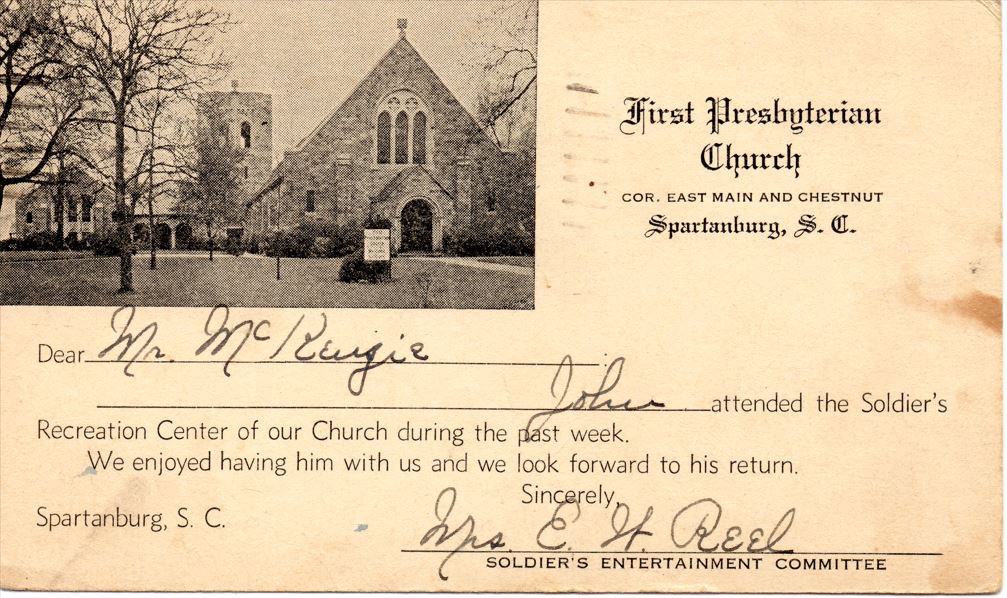 First Presbyterian
Church
COR. EAST MAIN AND CHESTNUT
Spartanburg, S. C.
Dear Mr. McKenzie
John attended the Soldier's
Recreation Center of our Church during the past week.
We enjoyed having him with us and we look forward to his return.
Sincerely,
Spartanburg, S. C.
Mrs. E. W. Reel
SOLDIER'S ENTERTAINMENT COMMITTEE